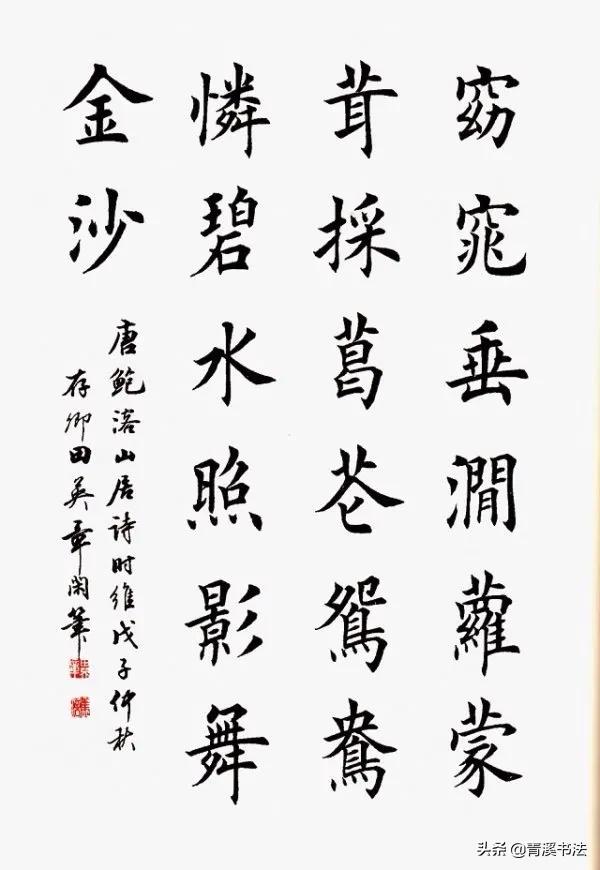 窈窕垂澗蘿蒙
茸採葛芲鴛鴦
憐碧水照影舞
金沙
唐鮑溶山居诗时維戊子仲秋
存卿田英章閑筆
头条@青溪书法